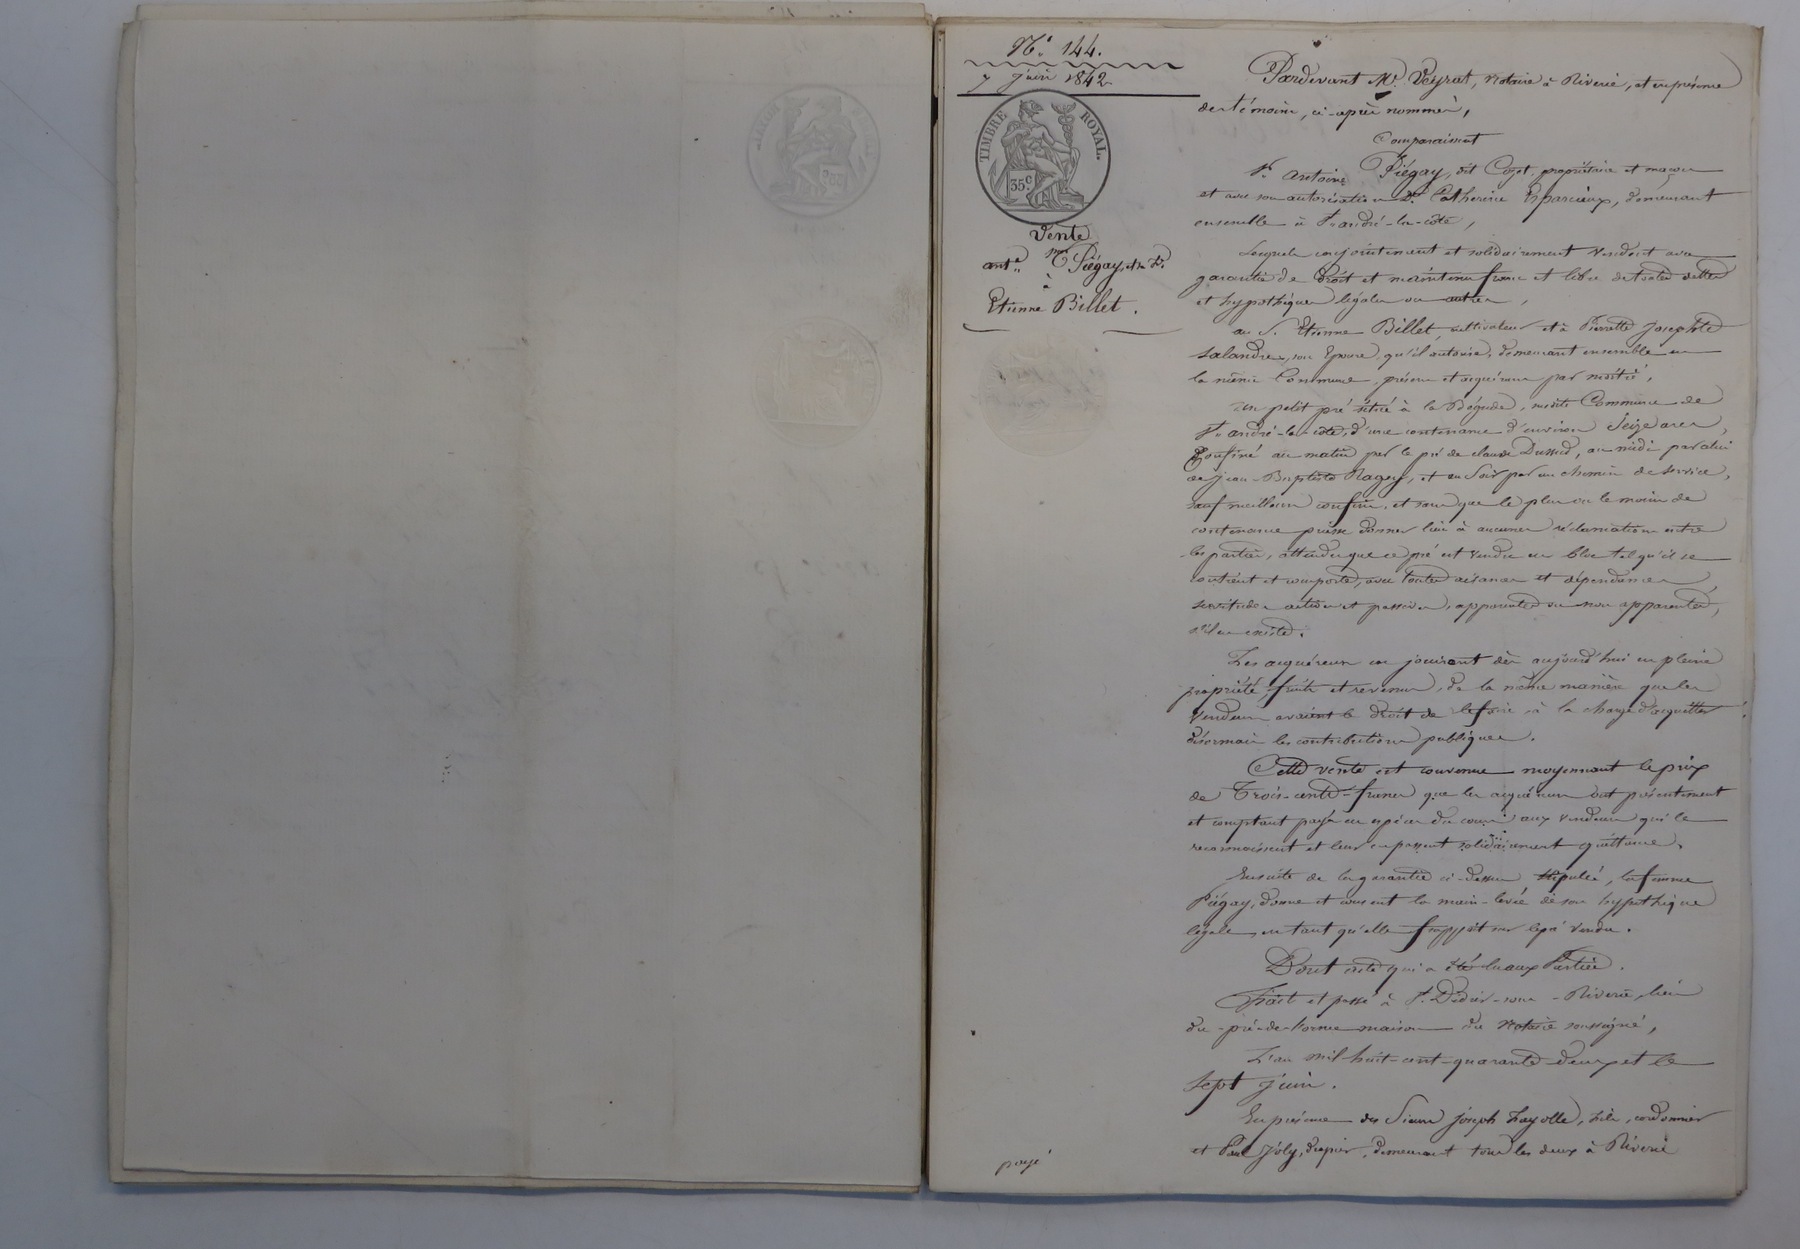 N.° 144.
7 juin 1842
TIMBRE ROYAL.
35.c
Vente
par
ant.e Piégay, et sa f.e
à
Etienne Billet.
Pardevant M.e Veyrat, notaire à Riverie, et en présence
des témoins, ci-après nommés,
Comparaissent
S.r antoine Piégay, dit Cozet, propriétaire et maçon
et avec son autorisation D.e Catherine Esparcieux, demeurant
ensemble à S.t andré-la-côte,
Lesquels conjointement et solidairement vendent avec
garantie de droit et maintenue franc et libre de toutes dettes
et hypothèques légales ou autres,
au S. Etienne Billet cultivateur et à Pierrette Josephte
Salandre, son Epouse, qu'il autorise, demeurant ensemble en
la même Commune, présens et acquéreurs par moitié,
Un petit pré situé à la Bégude, susdite Commune de
S.t andré-la-côte, d'une contenance d'environ Seize ares,
Confiné au matin par le pré de claude Dussud, au midi par celui
de jean Baptiste Ragey, et au Soir par un chemin de service,
sauf meilleurs confins, et sans que le plus ou le moins de
contenance puisse donner lieu à aucunes réclamations entre
les parties, attendu que ce pré est vendu en bloc tel qu'il se
contient et comporte, avec toutes aisances et dépendances,
servitudes actives et passives, apparentes ou non apparentes,
s'il en existe.
Les acquéreurs en jouiront dès aujourd'hui en pleine
propriété, fruits et revenus, de la même manière que les
vendeurs avaient le droit de le faire, à la charge d'acquitter
désormais les contributions publiques.
Cette vente est convenue moyennant le prix
de Trois-cents-francs que les acquéreurs ont présentement
et comptant payés en espèces du cours aux vendeurs qui le
reconnaissent et leur en passent solidairement quittance.
Ensuite de la garantie ci-dessus stipulée, la femme
Piégay, donne et consent la main-levée de son hypothèque
légale, en tant qu'elle frappait sur le pré vendu.
Dont acte qui a été lu aux Parties.
Fait et passé à S.t Didier-sous-Riverie, lieu
du-pré-de-forme maison du notaire soussigné,
L'an mil huit-cent-quarante-deux et le
Sept juin.
En présence des Sieurs joseph Fayolle, fils, cordonnier
et Paul Joly, drapier, demeurant tous les deux à Riverie
payé